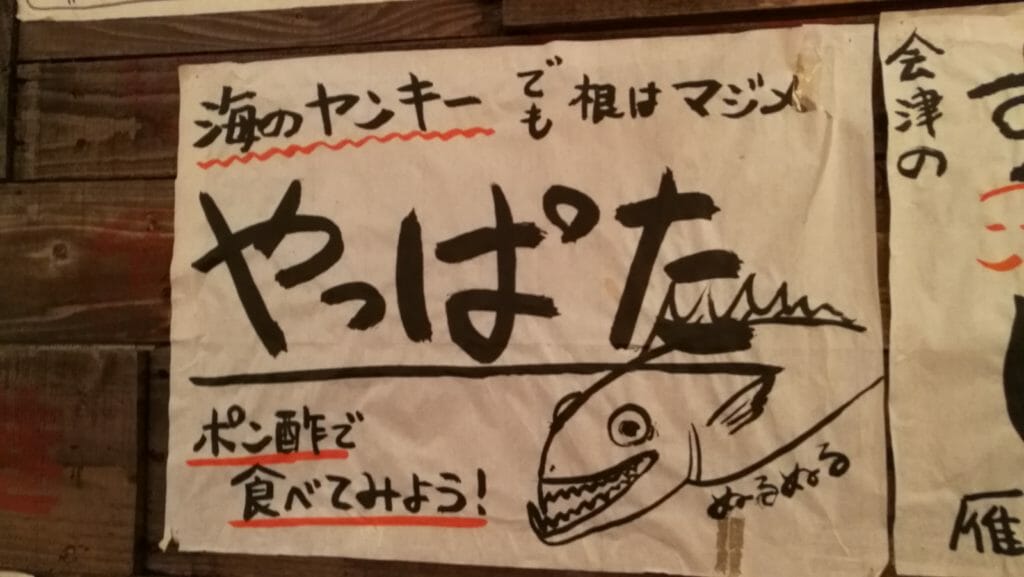 海のヤンキー でも 根はマジメ
やっぱた
ポン酢で
食べてみよう!
ぬ〜るぬ〜る
会津の
雁